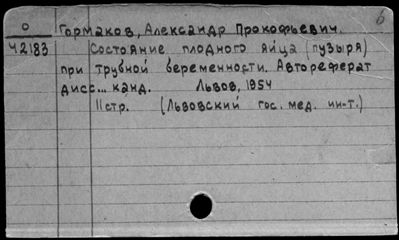 б
О Гормаков, Александр Прокофьевич.
42183 Состояние плодного яйца (пузыря)
при трубной беременности. Автореферат
дисс... канд. Львов, 1954
11стр. (Львовский гос. мед. ин-т.)